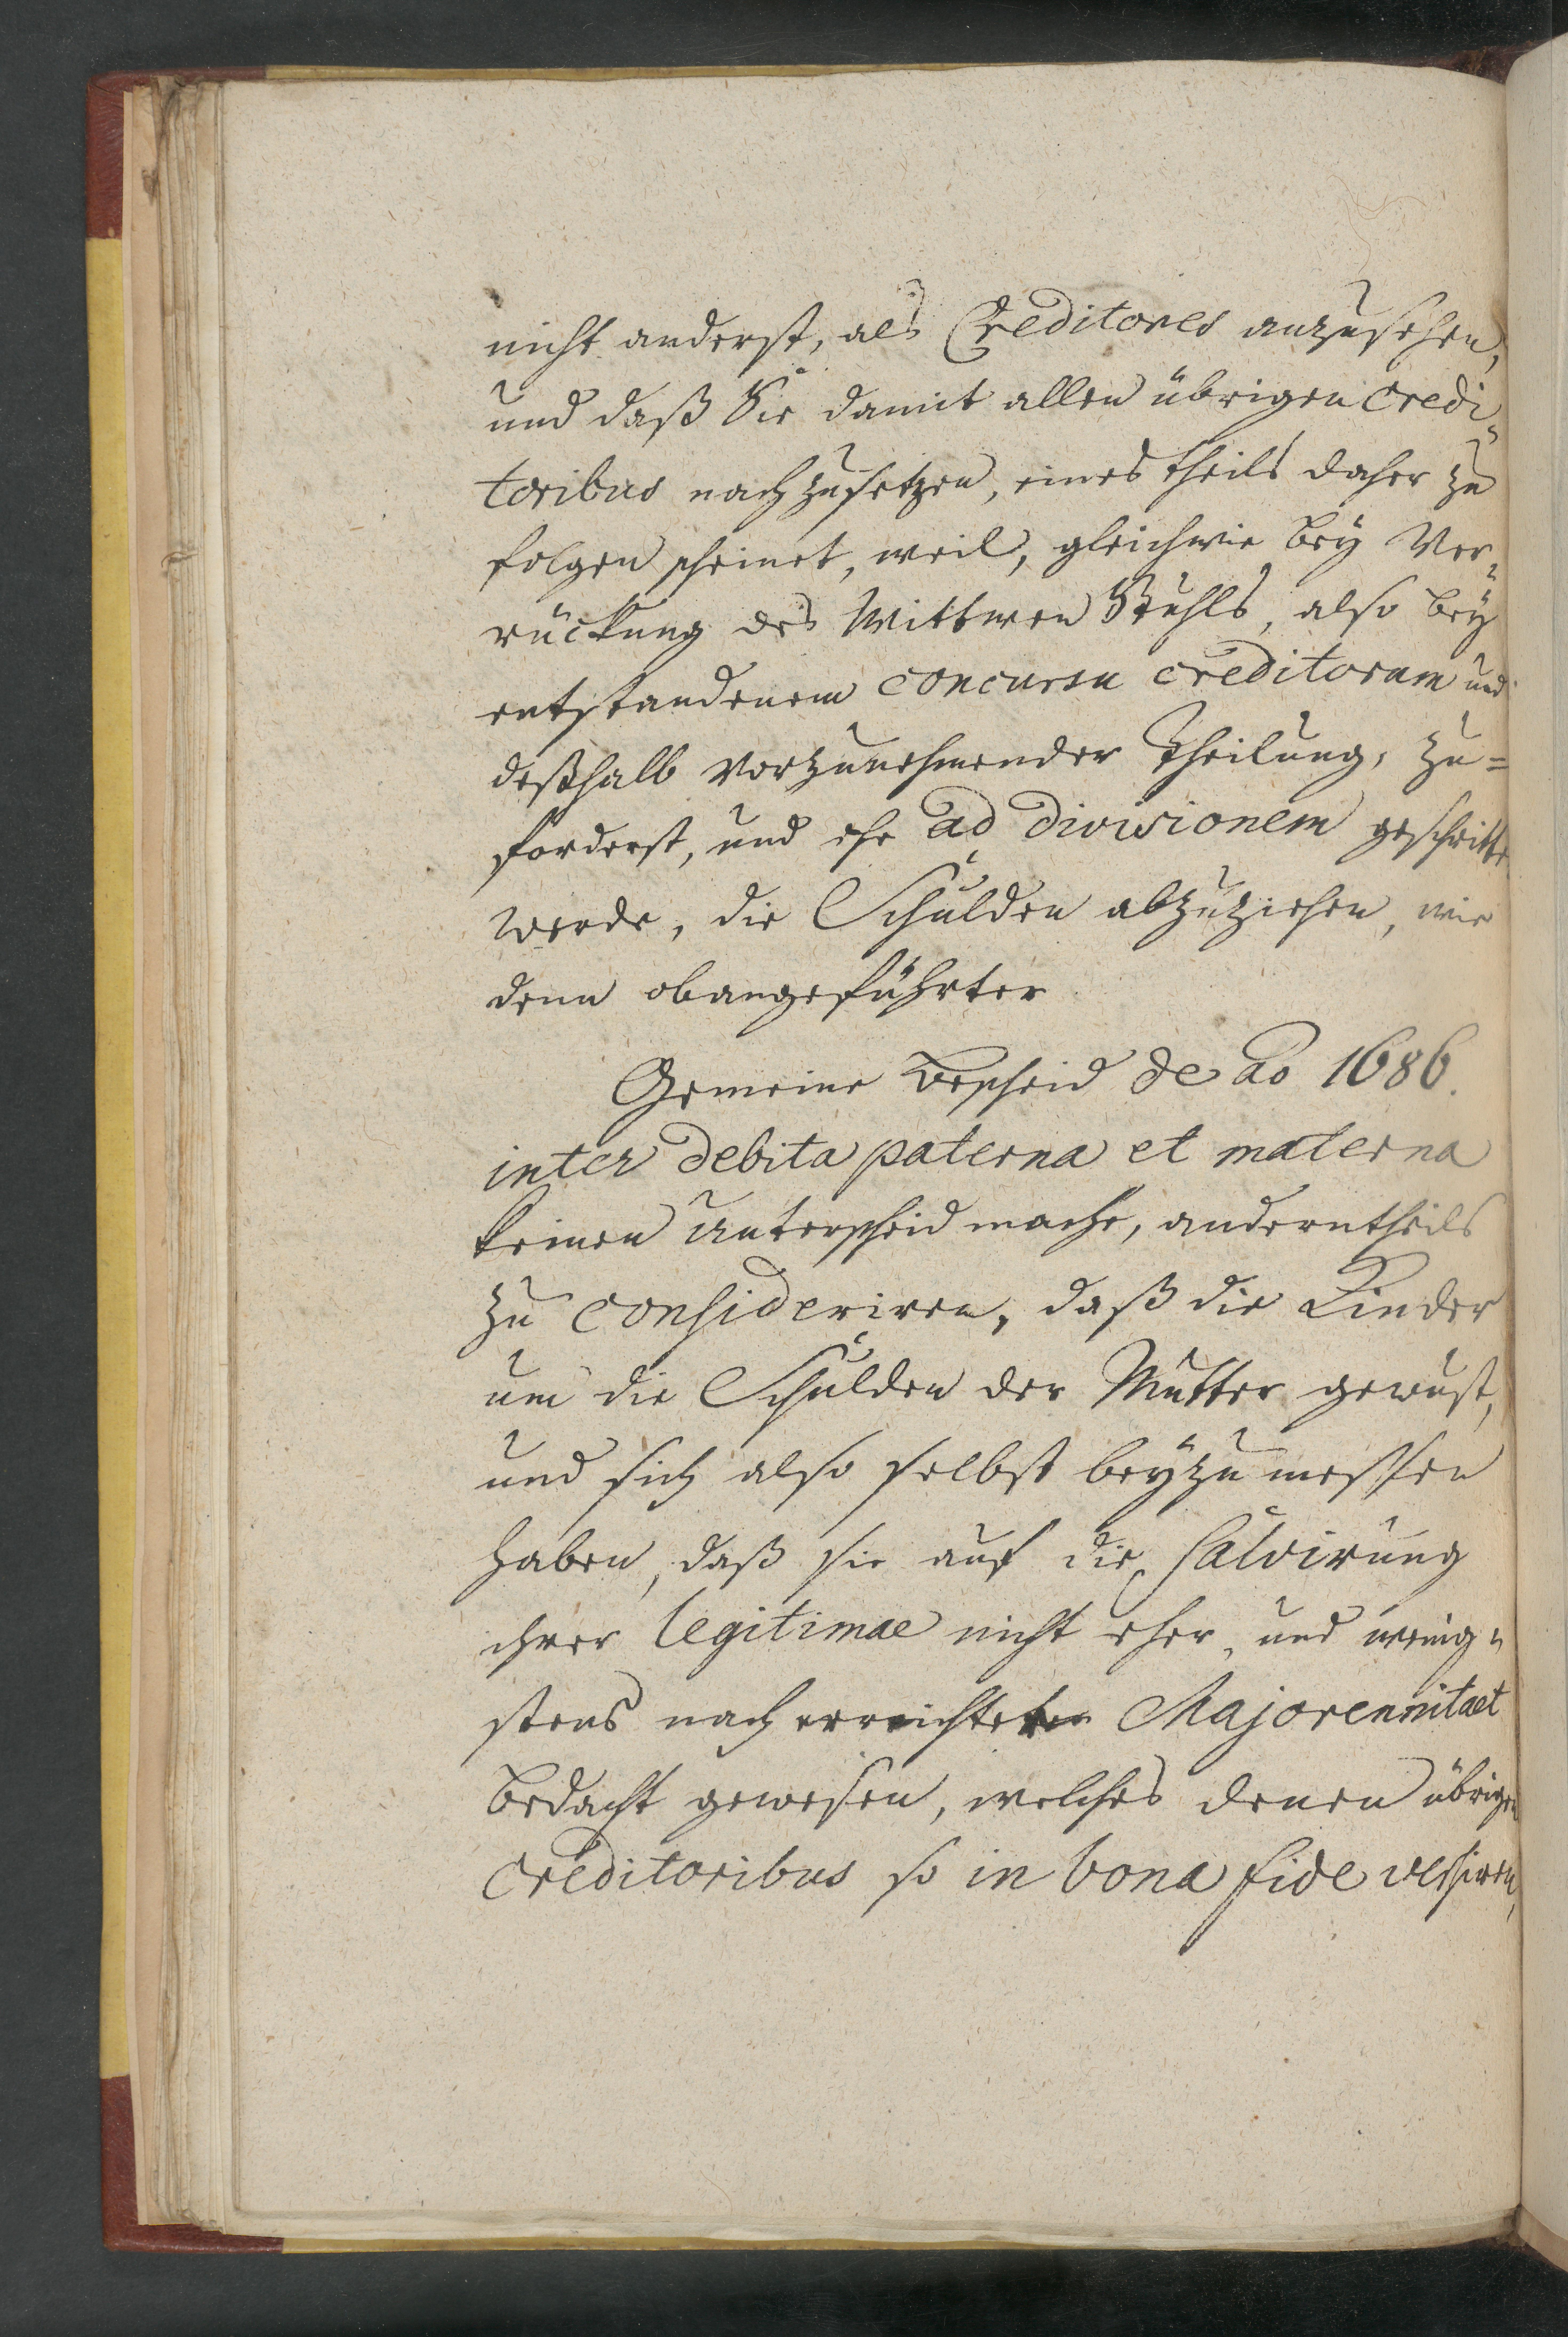 nicht anderst, als Creditores anzusehen,
und daß Sie damit allen übrigen Credi-
toribus nachzusetzen, eines theils daher zu
folgen scheinet, weil, gleichwie bey Ver-
rückung des Wittwen Stuhls, also bey
entstandenem concursu creditorum und
deßhalb vorzunehmender Theilung, zu=
forderst, und ehe ad divisionem geschritte
werde, die Schulden abzuziehen, wie
denn obangeführter
Gemeine Bescheid de ao 1686.
inter debita paterna et materna
keinen Unterscheid mache, anderntheils
zu consideriren, daß die Kinder
um die Schulden der Mutter gewust,
und sich also selbst beyzumessen
haben, daß sie auf die Salvirung
ihrer legitimae nicht eher, und wenig-
stens nach erreichter Majorennitaet
bedacht gewesen, welches denen übrigen
Creditoribus so in bona fide versiren,